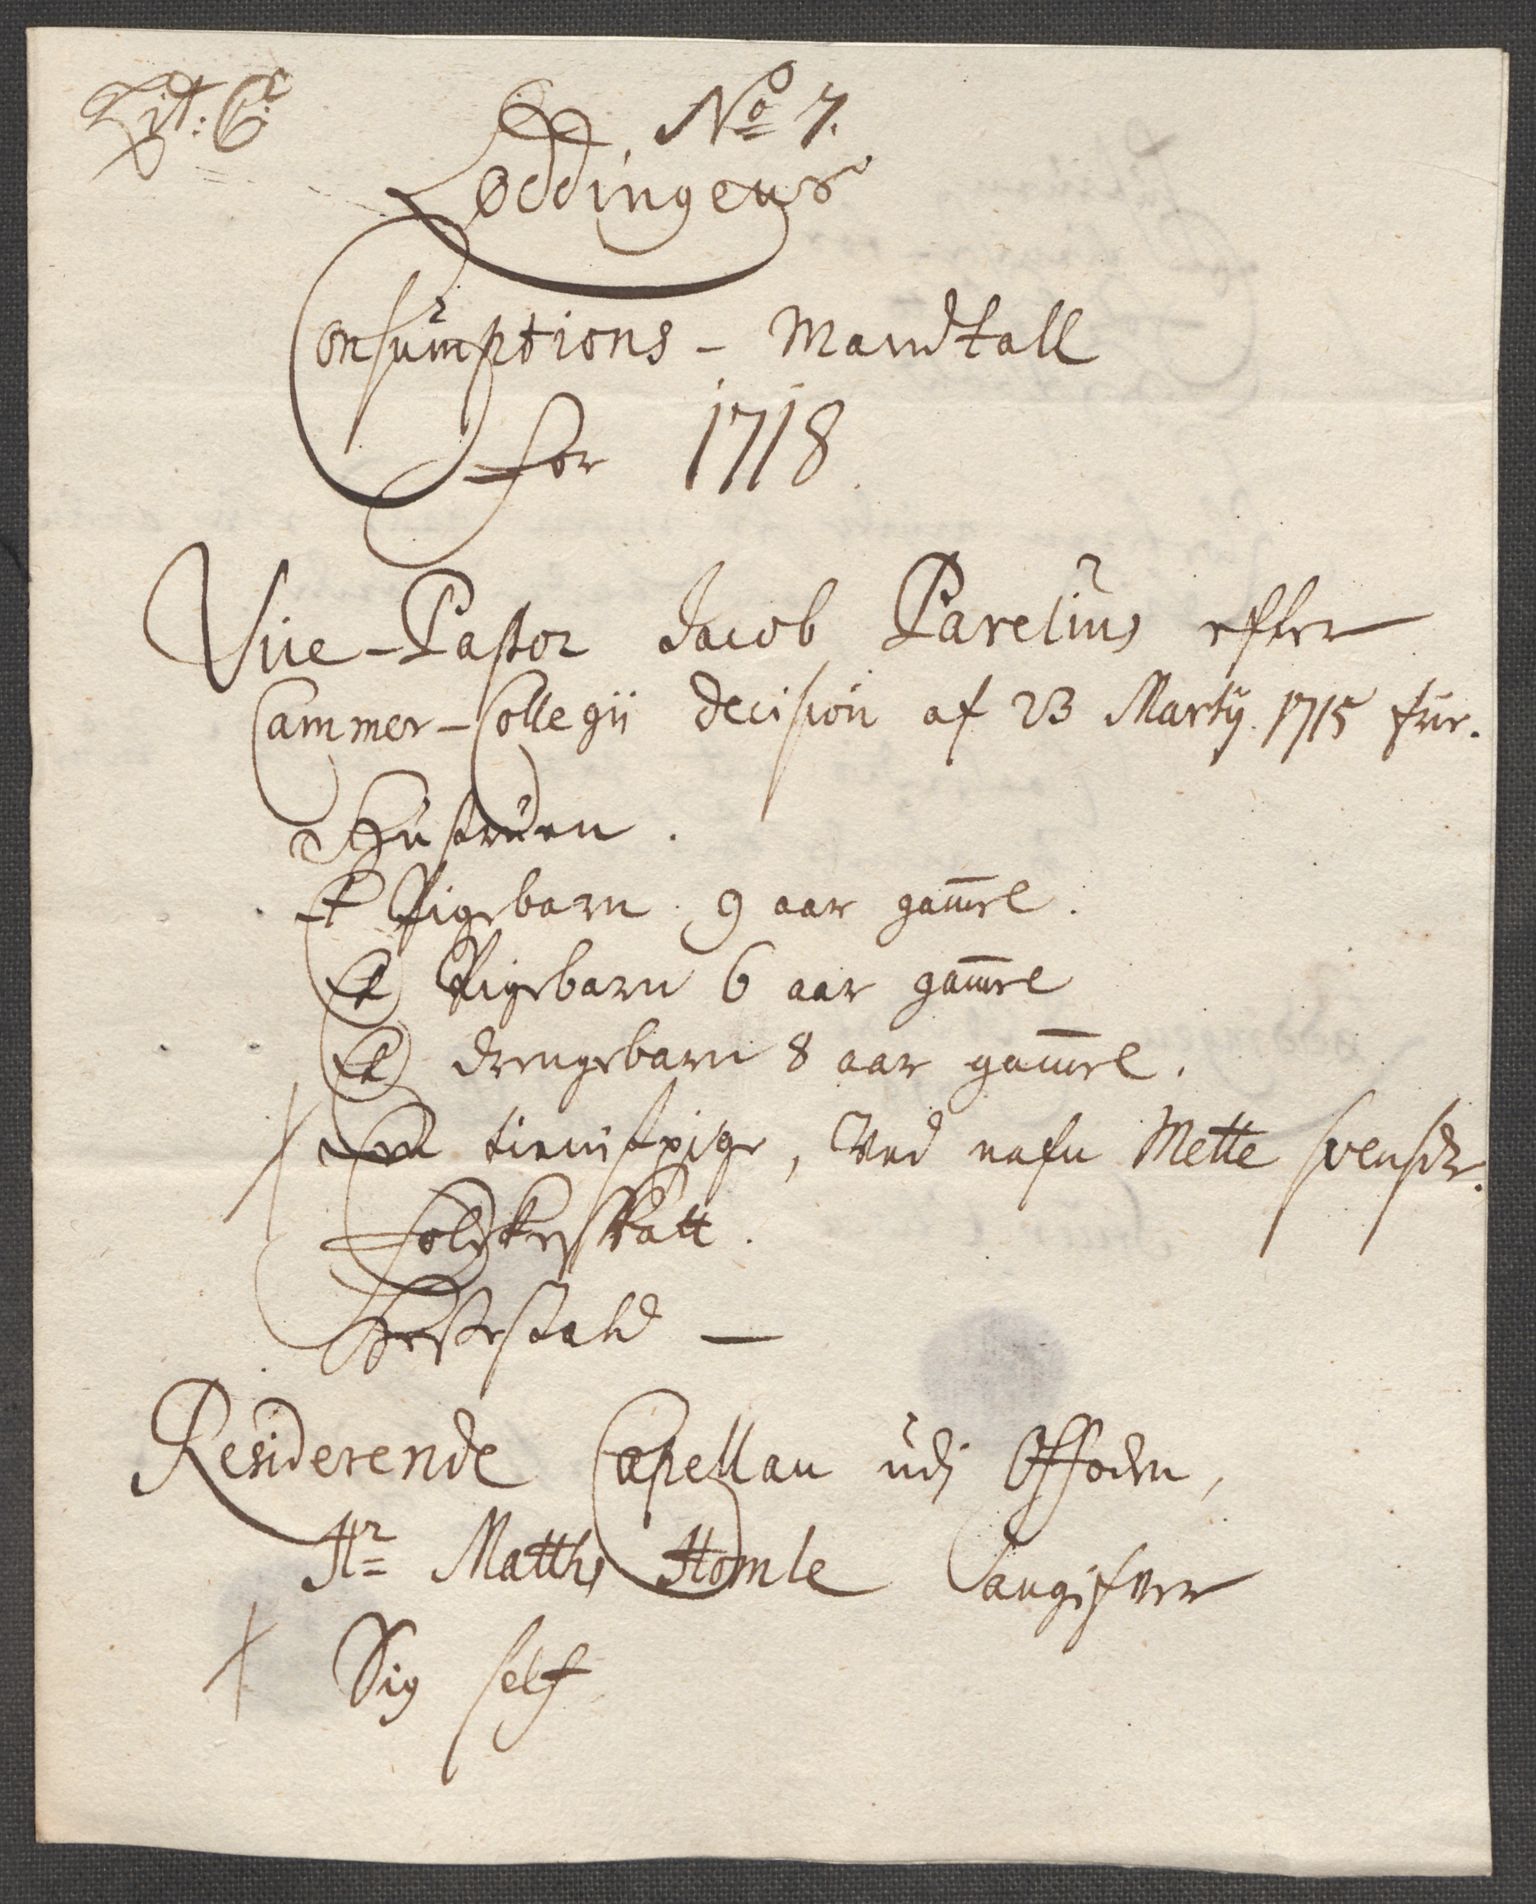 Lit: C
No 7.
Løddingens
Consumptions - Mandtall
for 1718.
Vice-Pastor Jacob Parelius efter
Cammer-Collegii decision af 23 Martij 1715 frie.
Hustruen.
Et Pigebarn 9 aar gam̅el.
Et Pigebarn 6 aar gam̅el
Et drengebarn 8 aar gam̅el.
En tienistpige, Ved nafn Mette Svensdr.
Folcke skatt.
Hestestald —
Residerende Capellan udj Offoden,
Hr Matths Homle angifver
Sig self